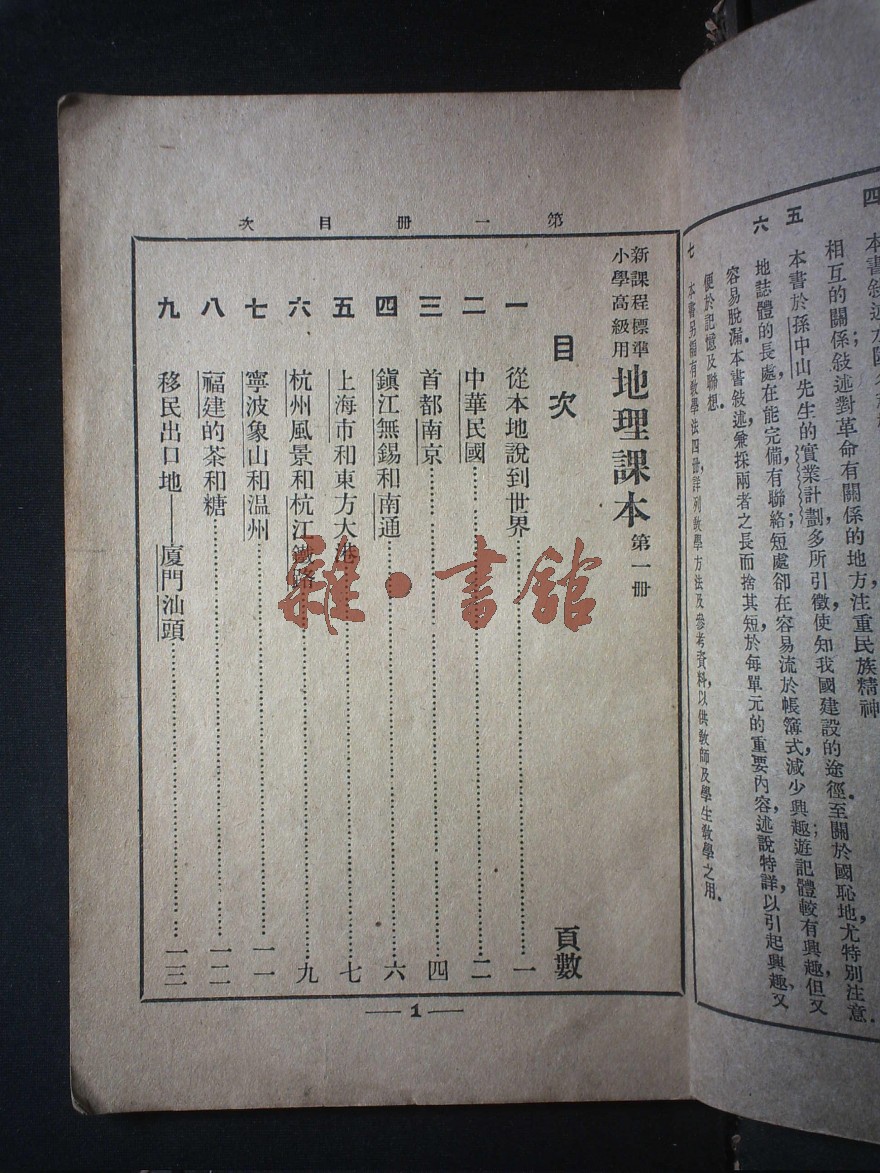 四
相互的關係敘述對革命有關係的地方注重民族精神
五　本書於孫中山先生的實業計劃，多所引徵，使知我國建設的途徑．至關於國恥地，尤特別注意．
六　地誌體的長處，在能完備有聯絡；短處卻在容易流於帳簿式，減少興趣；遊記體較有興趣，但又
容易脫漏．本書敍述，兼採兩者之長，而捨其短，於每單元的重要內容，述說特詳，以引起興趣，又
便於記憶及聯想．
七　本書另編有教學法四冊，詳列教學方法及參考資料，以供教師及學生教學之用．
第一冊目次
新課程標準
小學高級用
地理課本　第一冊
目次　頁數
一　從本地說到世界……一
二　中華民國……二
三　首都南京……四
四　鎮江無錫和南通……六
五　上海市和東方大港……七
六　杭州風景和杭江鐵路……九
七　寧波象山和温州……一一
八　福建的茶和糖……一二
九　移民出口地——廈門汕頭……一三
— 1 —
雜·書館